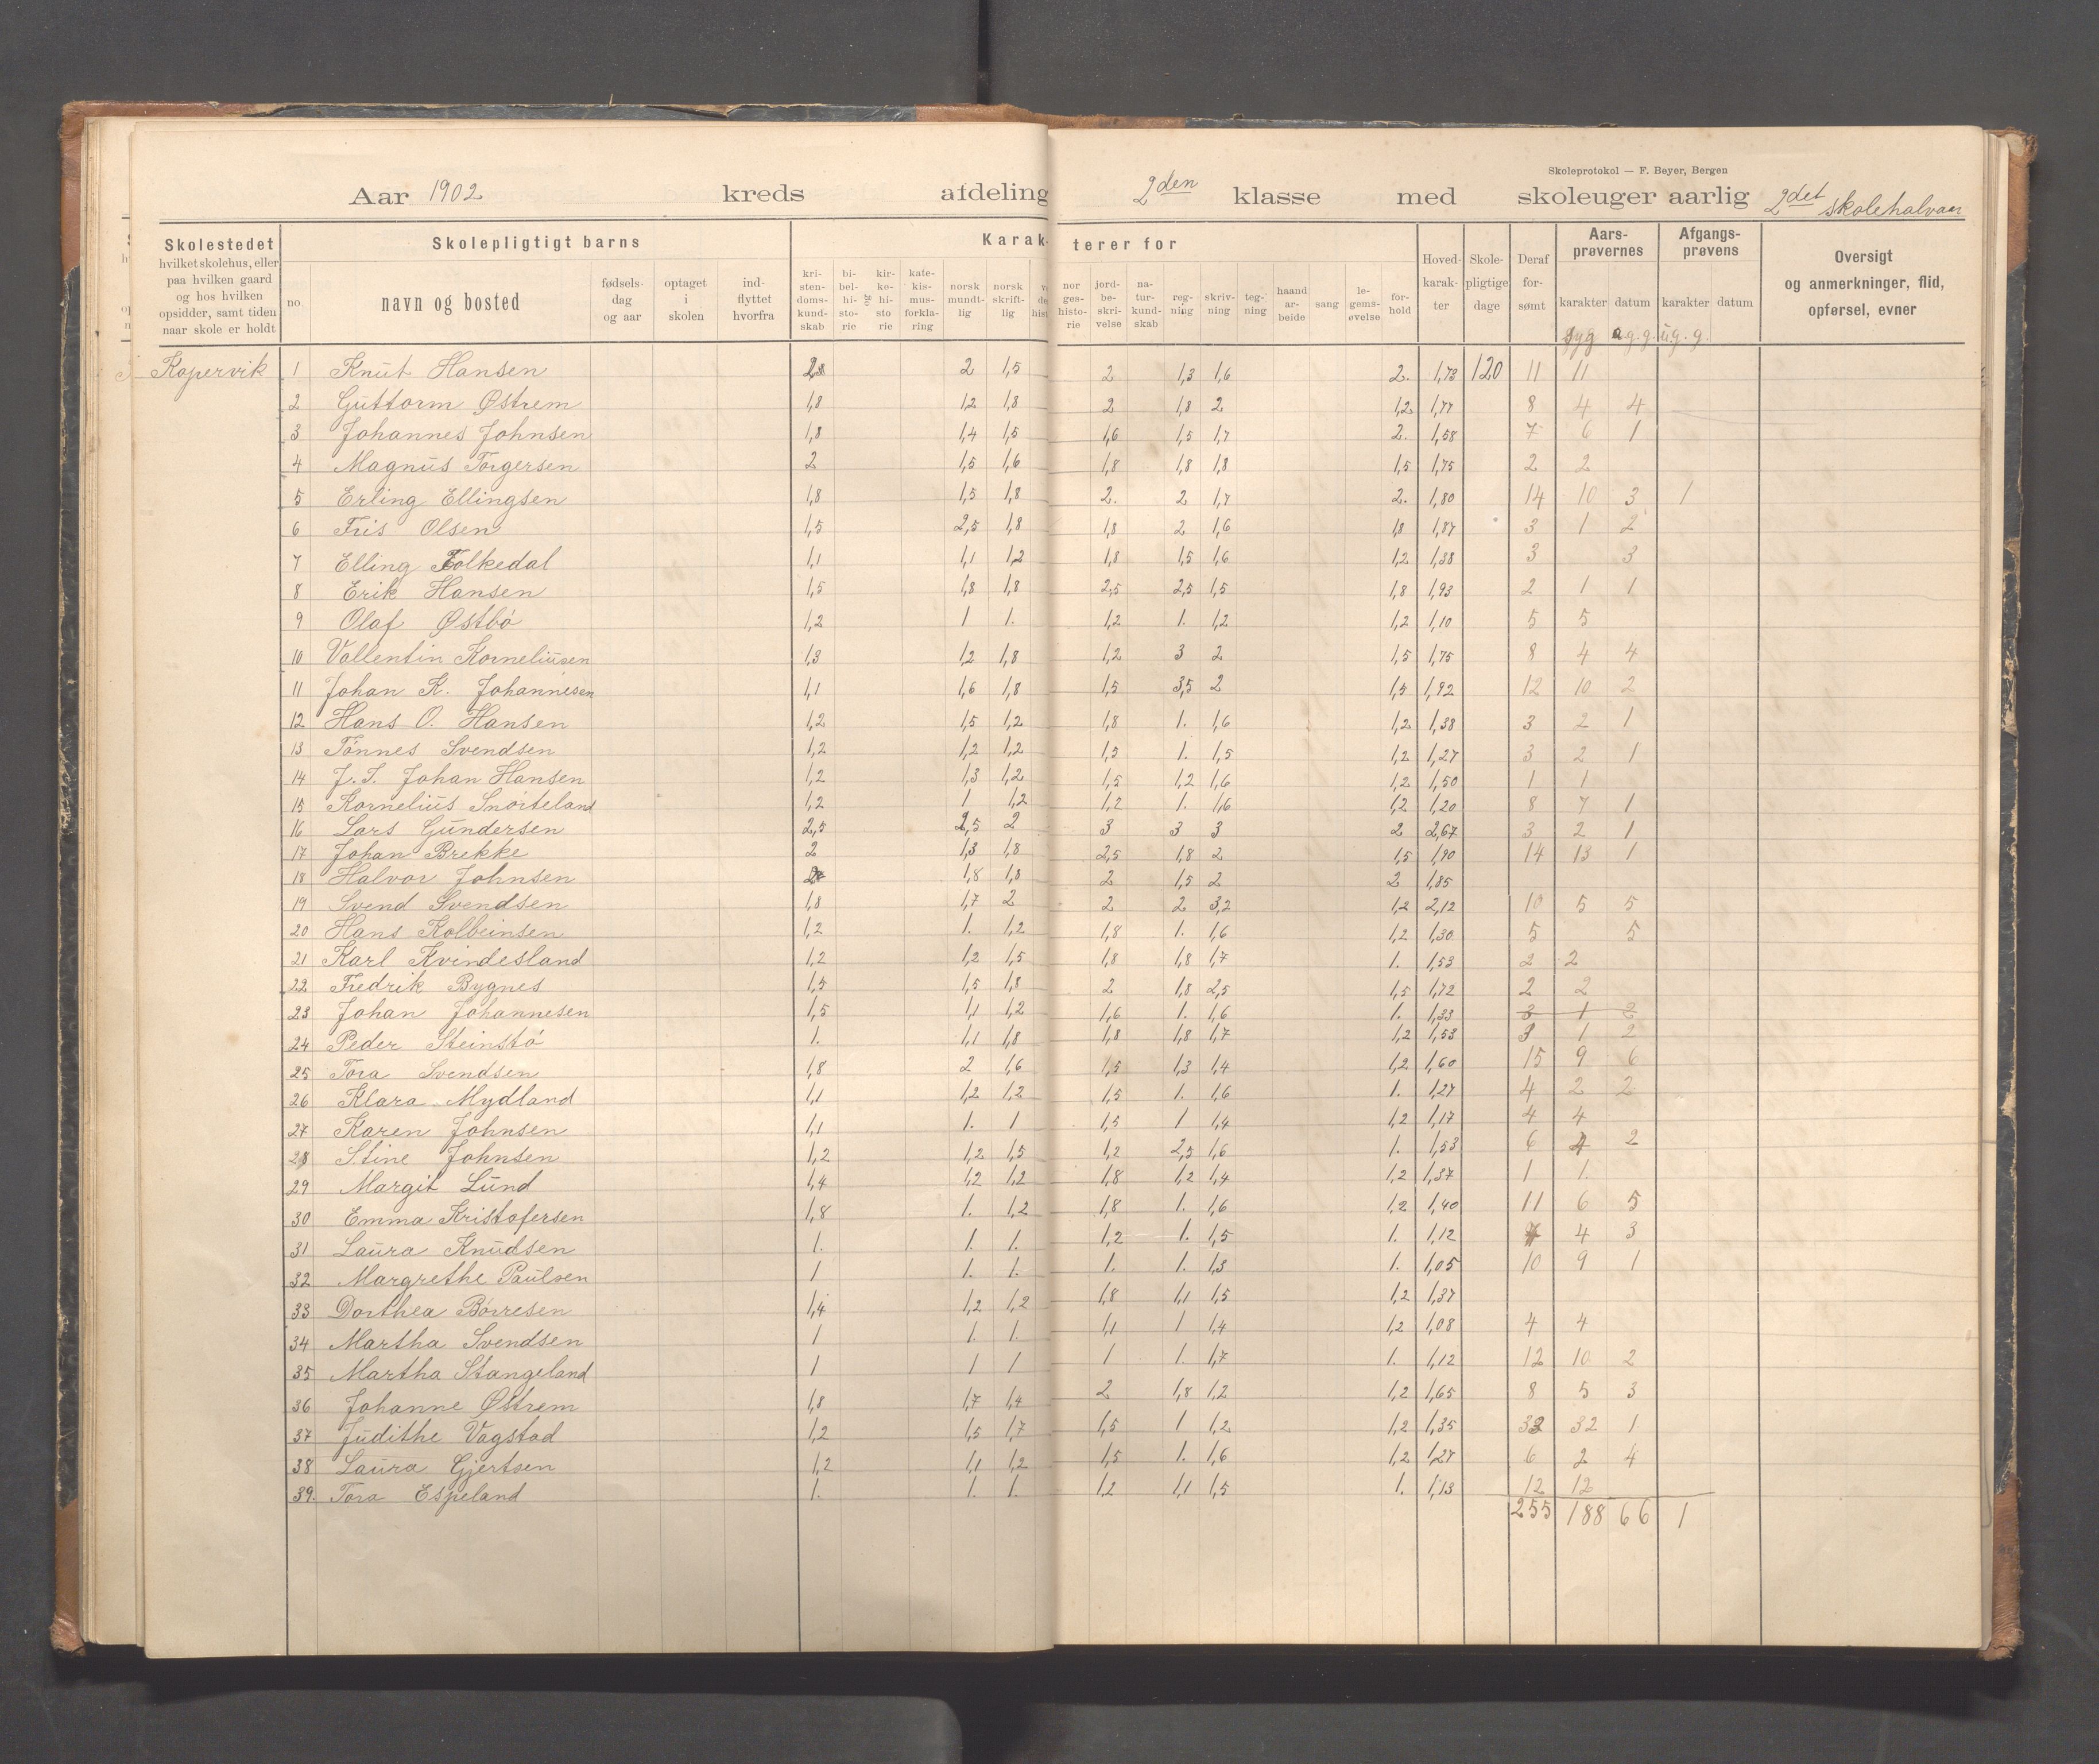 Skoleprotokol — F. Beyer, Bergen
Aar 1902 kreds afdeling 2den klasse med skoleuger aarlig 2det skolehalvaar
Skolestedet
hvilket skolehus, eller
paa hvilken gaard
og hos hvilken
opsidder, samt tiden
naar skole er holdt
Skolepligtigt barns
no.
navn og bosted
fødsels-
dag
og aar
optaget
i
skolen
ind-
flyttet
hvorfra
Karak-
terer for
kri-
sten-
doms-
kund-
skab
bi-
bel-
hi-
sto-
rie
og
kir-
ke-
hi-
sto
rie
kate-
kis-
mus-
forkla-
ring
norsk
mundt-
lig
norsk
skrift-
lig
nor
ges-
histo-
rie
jord-
be-
skri-
velse
na-
tur-
kund-
skab
reg-
ning
skriv-
ning
teg-
ning
haand
ar-
beide
sang
le-
gems-
øvelse
for-
hold
Hoved-
karak-
ter
Skole-
pligtige
dage
Deraf
for-
sømt
Aars-
prøvernes
karakter datum
Afgangs-
prøvens
karakter datum
Oversigt
og anmerkninger, flid,
opførsel, evner
syg a.g.g. u.g.g.
Kopervik 1 Knut Hansen 2 1,5 2 1,3 1,6 2. 1,73 120 11 11
2 Guttorm Østrem 1,8 1,2 1,8 2 1,8 2 1,2 1,77 8 4 4
3 Johannes Johnsen 1,8 1,4 1,5 1,6 1,5 1,7 2. 1,58 7 6 1
4 Magnus Torgersen 2 1,5 1,6 1,8 1,8 1,8 1,5 1,75 2 2
5 Erling Ellingsen 1,8 1,5 1,8 2. 2 1,7 2. 1,80 14 10 3 1
6 Fris Olsen 1,5 2,5 1,8 1,8 2 1,6 1,8 1,87 3 1 2
7 Elling Folkedal 1,1 1,1 1,2 1,8 1,5 1,6 1,2 1,38 3 3
8 Erik Hansen 1,5 1,8 1,8 2,5 2,5 1,5 1,8 1,93 2 1 1
9 Olaf Østbö 1,2 1 1. 1,2 1. 1,2 1,2 1,10 5 5
10 Vallentin Korneliusen 1,3 1,2 1,8 1,2 3 2 1,5 1,75 8 4 4
11 Johan K. Johannesen 1,1 1,6 1,8 1,5 3,5 2 1,5 1,92 12 10 2
12 Hans O. Hansen 1,2 1,5 1,2 1,8 1. 1,6 1,2 1,38 3 2 1
13 Tönnes Svendsen 1,2 1,2 1,2 1,5 1. 1,5 1,2 1,27 3 2 1
14 J. S. Johan Hansen 1,2 1,3 1,2 1,5 1,2 1,6 1,2 1,50 1 1
15 Kornelius Snörteland 1,2 1 1,2 1,2 1. 1,6 1,2 1,20 8 7 1
16 Lars Gundersen 2,5 2,5 2 3 3 3 2 2,67 3 2 1
17 Johan Brekke 2 1,3 1,8 2,5 1,8 2 1,5 1,90 14 13 1
18 Halvor Johnsen 1,8 1,8 2 1,5 2 2 1,85
19 Svend Svendsen 1,8 1,7 2 2 2 3,2 1,2 2,12 10 5 5
20 Hans Kolbeinsen 1,2 1. 1,2 1,8 1. 1,6 1,2 1,30 5 5
21 Karl Kvindesland 1,2 1,2 1,5 1,8 1,8 1,7 1. 1,53 2 2
22 Fredrik Bygnes 1,5 1,5 1,8 2 1,8 2,5 1,5 1,72 2 2
23 Johan Johannesen 1,5 1,1 1,2 1,6 1. 1,6 1. 1,33 3 1 2
24 Peder Steinstö 1. 1,1 1,8 1,8 1,8 1,7 1,2 1,53 3 1 2
25 Tora Svendsen 1,8 2 1,6 1,5 1,3 1,4 1,2 1,60 15 9 6
26 Klara Mydland 1,1 1,2 1,2 1,5 1. 1,6 1. 1,27 4 2 2
27 Karen Johnsen 1,1 1. 1 1,5 1 1,4 1,2 1,17 4 4
28 Stine Johnsen 1,2 1,2 1,5 1,2 2,5 1,6 1. 1,53 6 4 2
29 Margit Lund 1,4 1,2 1,2 1,8 1,2 1,4 1,2 1,37 1 1.
30 Emma Kristofersen 1,8 1. 1,2 1,8 1. 1,6 1,2 1,40 11 6 5
31 Laura Knudsen 1. 1. 1. 1,2 1. 1,5 1. 1,12 7 4 3
32 Margrethe Paulsen 1 1. 1. 1. 1. 1,3 1. 1,05 10 9 1
33 Dorthea Börresen 1,4 1,2 1,2 1,8 1,1 1,5 1,2 1,37
34 Martha Svendsen 1 1. 1. 1,1 1 1,4 1,2 1,08 4 4
35 Martha Stangeland 1 1 1 1 1. 1,7 1. 1,12 12 10 2
36 Johanne Østrem 1,8 1,7 1,4 2 1,8 1,2 1,2 1,65 8 5 3
37 Judithe Vagstad 1,2 1,5 1,7 1,5 1 1,2 1,2 1,35 33 32 1
38 Laura Gjertsen 1,2 1,1 1,2 1,5 1. 1,6 1,2 1,27 6 2 4
39. Tora Espeland 1. 1. 1. 1,2 1,1 1,5 1. 1,13 12 12
255 188 66 1